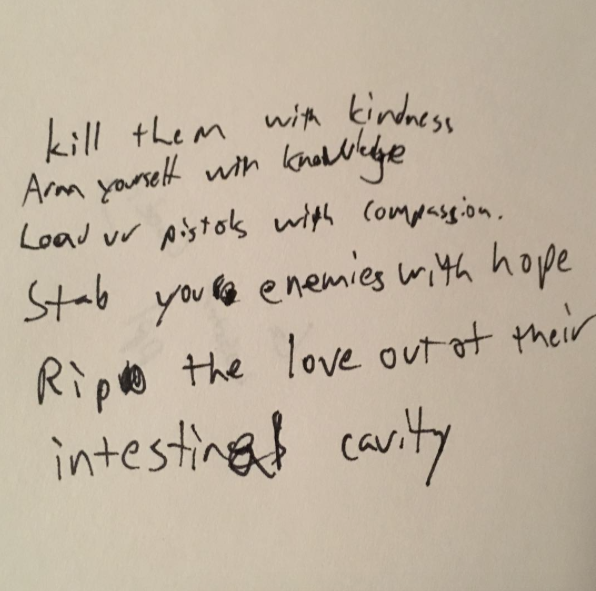 kill them with kindness
Arm yourself with knowledge
Load ur pistols with compassion.
Stab your enemies with hope
Rip the love out of their
intestinal cavity